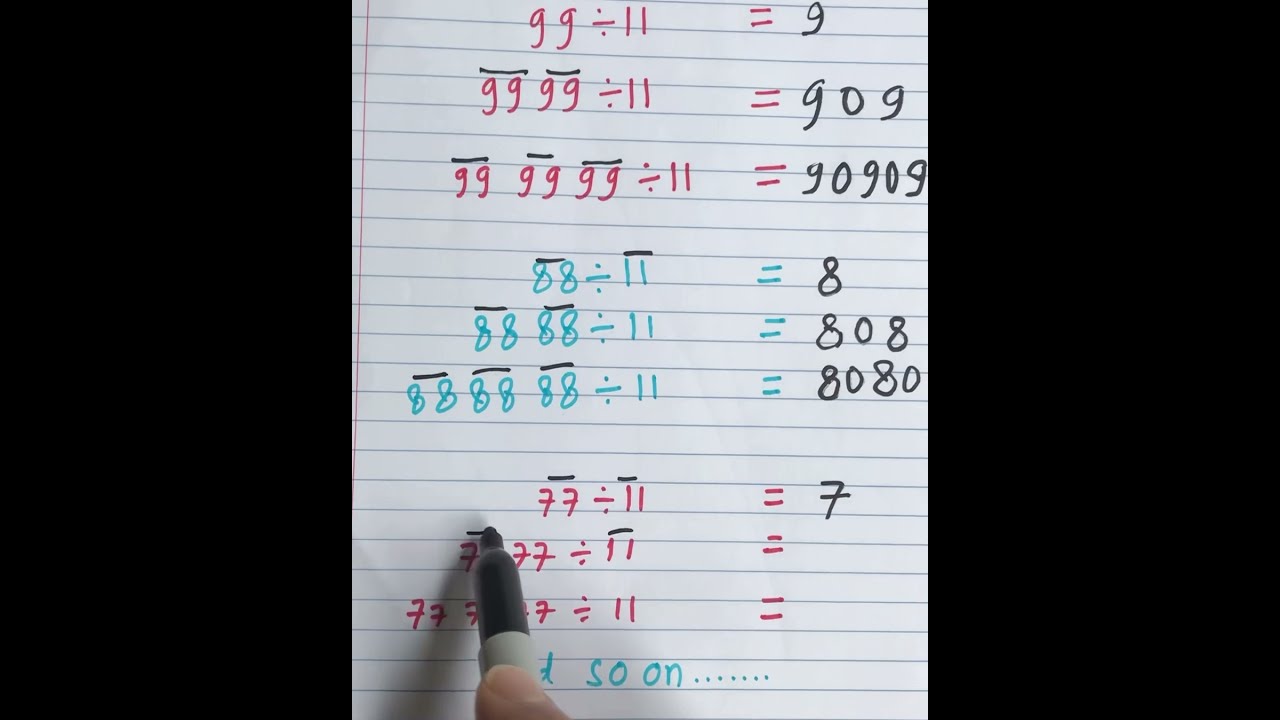 99 ÷ 11 = 9
99 99 ÷ 11 = 909
99 99 99 ÷ 11 = 90909
88 ÷ 11 = 8
88 88 ÷ 11 = 808
88 88 88 ÷ 11 = 8080
77 ÷ 11 = 7
77 ÷ 11 =
77 ÷ 11 =
so on.......